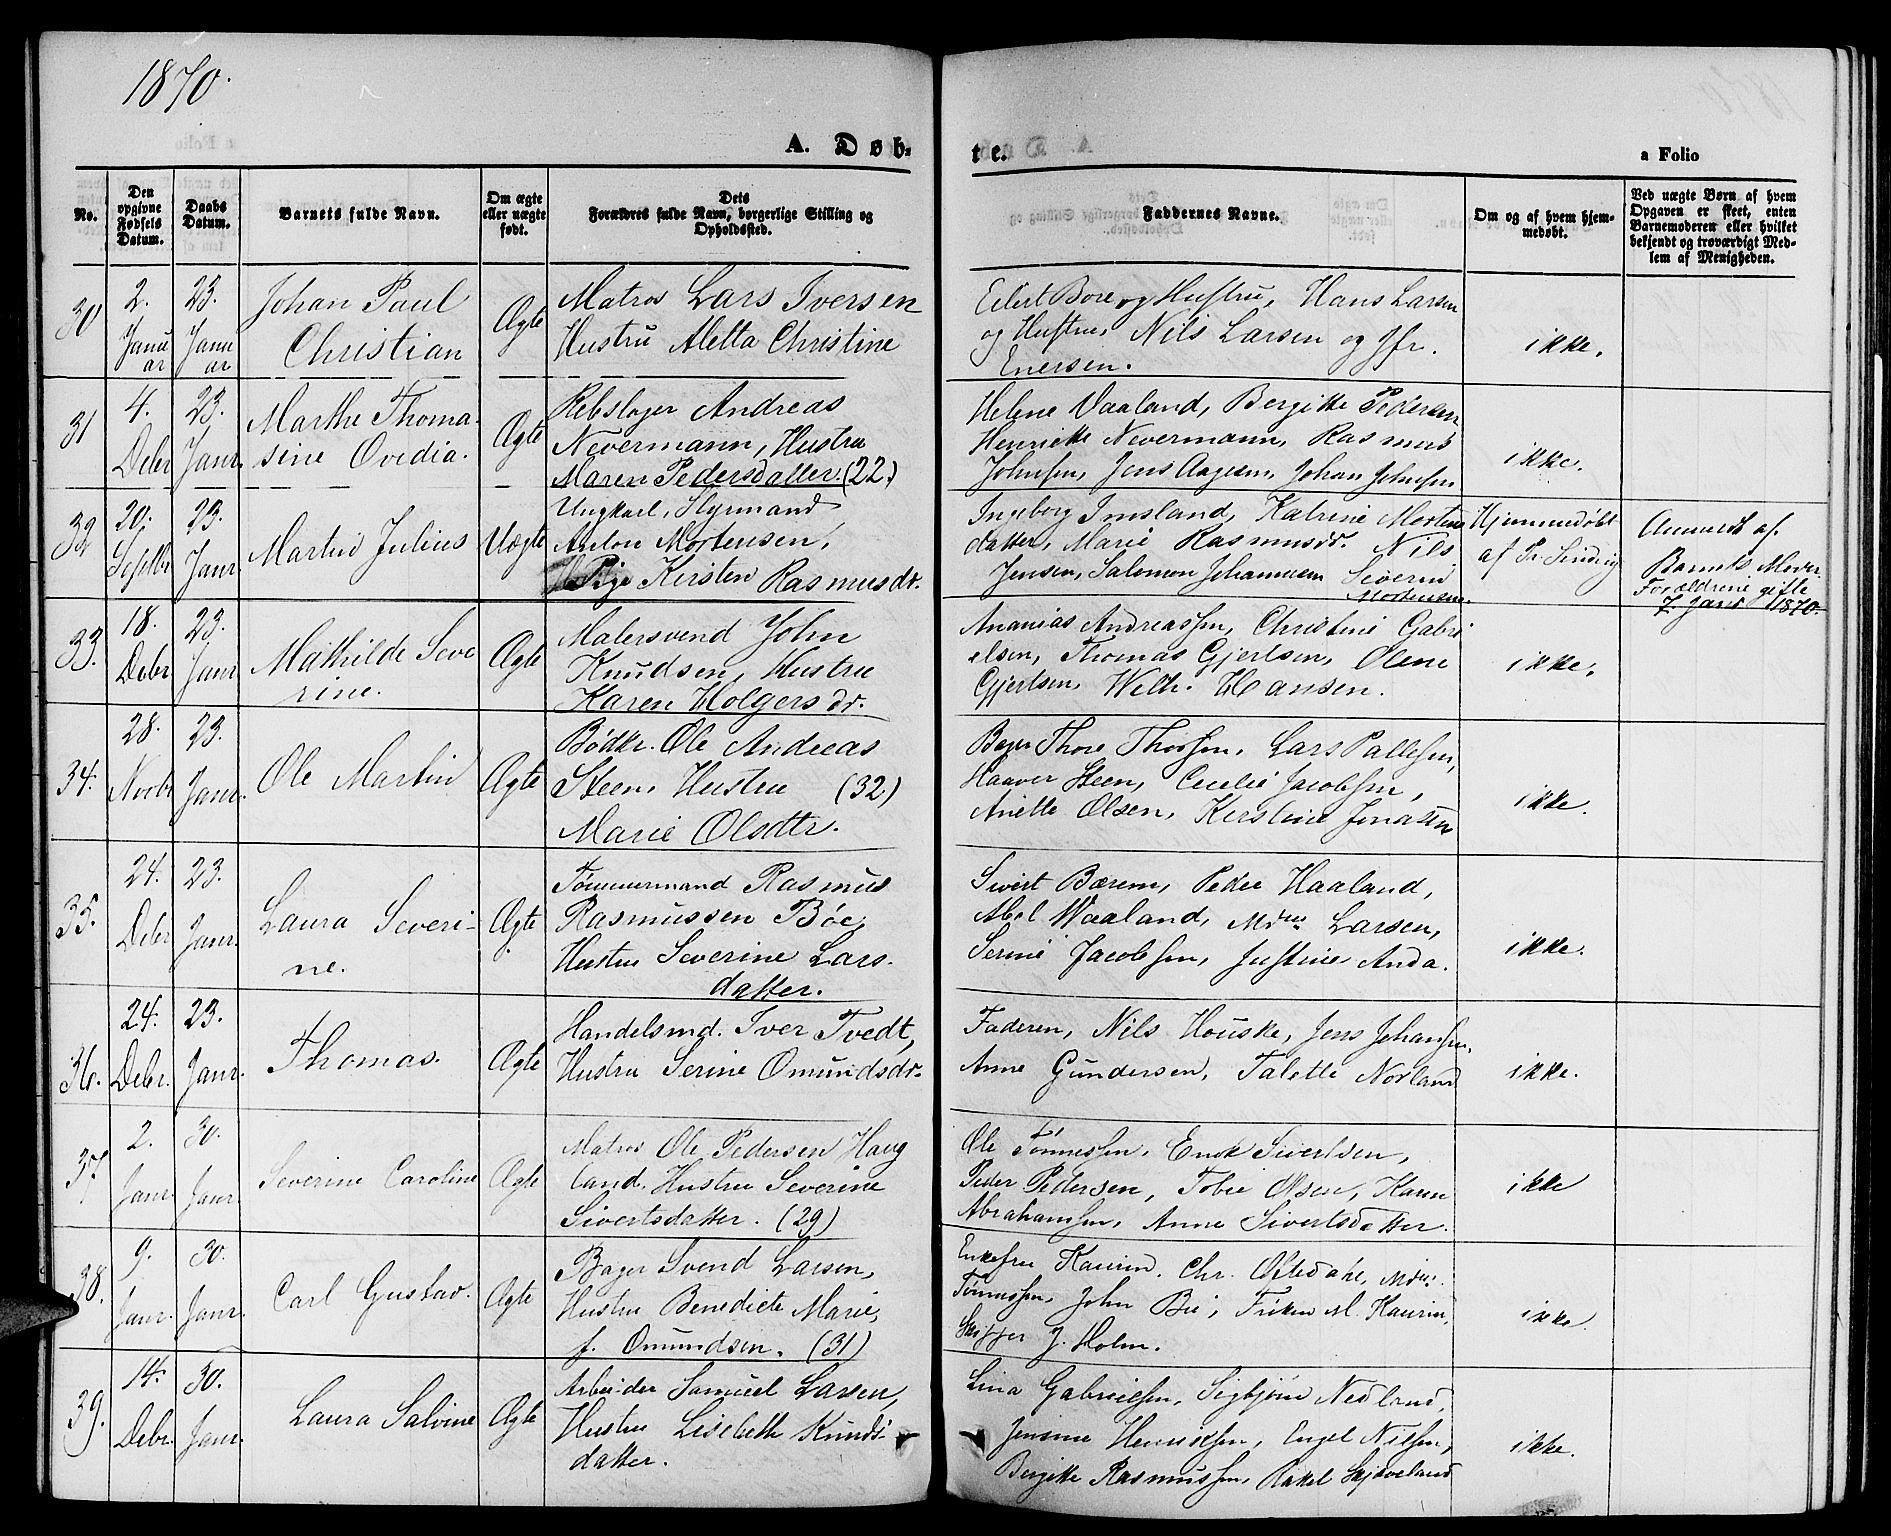 1870.
A. Døb-
te.
a Folio
No.
Den opgivne Fødsels Datum.
Daabs Datum.
Barnets fulde Navn.
Om ægte eller uægte født.
Dets Forældres fulde Navn, borgerlige Stilling og Opholdssted.
Faddernes Navne.
Om og af hvem hjemmedøbt.
Ved uægte Børn af hvem Opgaven er skeet, enten Barnemoderen eller hvilket bekjendt og troværdigt Medlem af Menigheden.
30
2. Januar
23. Januar
Johan Paul
Christian
Ægte
Matros Lars Iversen
Hustru Aletta Christine
Eilert Bore og Hustru, Hans Larsen
og Hustru, Nils Larsen og Jfr.
Enersen.
ikke.
31
4. Debr
23. Janr.
Marthe Thoma-
sine Ovedia.
Ægte
Rebslager Andreas
Nevermann, Hustru
Maren Pedersdatter. (22.)
Helene Vaaland, Bergitte Pedersen
Henriette Nevermann, Rasmus
Johnsen, Jens Aagesen, Johan Johnsen
ikke.
32
20. Septbr
23. Janr.
Martin Julius
Uægte
Ungkarl, Styrmand
Anton Mortensen,
Pige Kirsten Rasmusdr.
Ingeborg Imsland, Katrine Mortens
datter, Marie Rasmusdr. Nils
Jensen, Salomon Johannesen Severin
Mortensen.
Hjemmedøbt
af Pr. Sinding
Anmeldt af
Barnets Moder.
Forældrene gifte
7. Janr 1870.
33.
18. Debr
23. Janr
Mathilde Seve
rine.
Ægte
Malersvend John
Knudsen, Hustru
Karen Holgersdr.
Ananias Andreassen, Christine Gabri
elsen, Thomas Gjertsen, Olene
Gjertsen, Wilh. Hansen.
ikke.
34.
28. Novbr
23. Janr.
Ole Martin
Ægte
Bødkr. Ole Andreas
Steen, Hustru (32)
Marie Olsdtr.
Bager Thore Thorsen, Lars Pallesen,
Haaver Steen, Cecilie Jacobsen,
Anette Olsen, Kerstine Jonassen
ikke.
35.
24. Debr
23. Janr.
Laura Severi-
ne.
Ægte
Tømmermand Rasmus
Rasmussen Bøe,
Hustru Severine Lars-
datter.
Sivert Bærem, Peder Haaland,
Abel Waaland, Mdm Larsen,
Serine Jacobsen, Justine Anda.
ikke.
36.
24. Debr.
23. Janr.
Thomas.
Ægte
Handelsmd. Iver Tvedt,
Hustru Serine Omundsdr.
Faderen, Nils Houske, Jens Johansen,
Anne Gundersen, Talette Norland
ikke.
37.
2. Janr.
30. Janr.
Severine Caroline
Ægte
Matros Ole Pedersen Haug
land. Hustru Severine
Sivertsdatter. (29)
Ole Tønnessen, Enok Sivertsen,
Peder Pedersen, Tobie Olsen, Karen
Abrahamsen, Anne Sivertsdatter.
ikke
38.
9. Janr.
30. Janr.
Carl Gustav.
Ægte
Bager Svend Larsen,
Hustru Benedicte Marie,
f. Omundsen. (31)
Enkefru Kaurin. Chr. Oftedahl, Mdm
Tønnessen, John Bie, Frøken M. Kaurin,
Skipper J. Holm.
ikke
39.
14. Debr.
30. Janr.
Laura Salvine
Ægte
Arbeider Samuel Larsen,
Hustru Lisebeth Knuds-
datter.
Lina Gabrielsen, Sigbjørn Nedland,
Jensine Henriksen, Engel Nilsen,
Bergitte Rasmussen, Rakel Skjæveland
ikke.